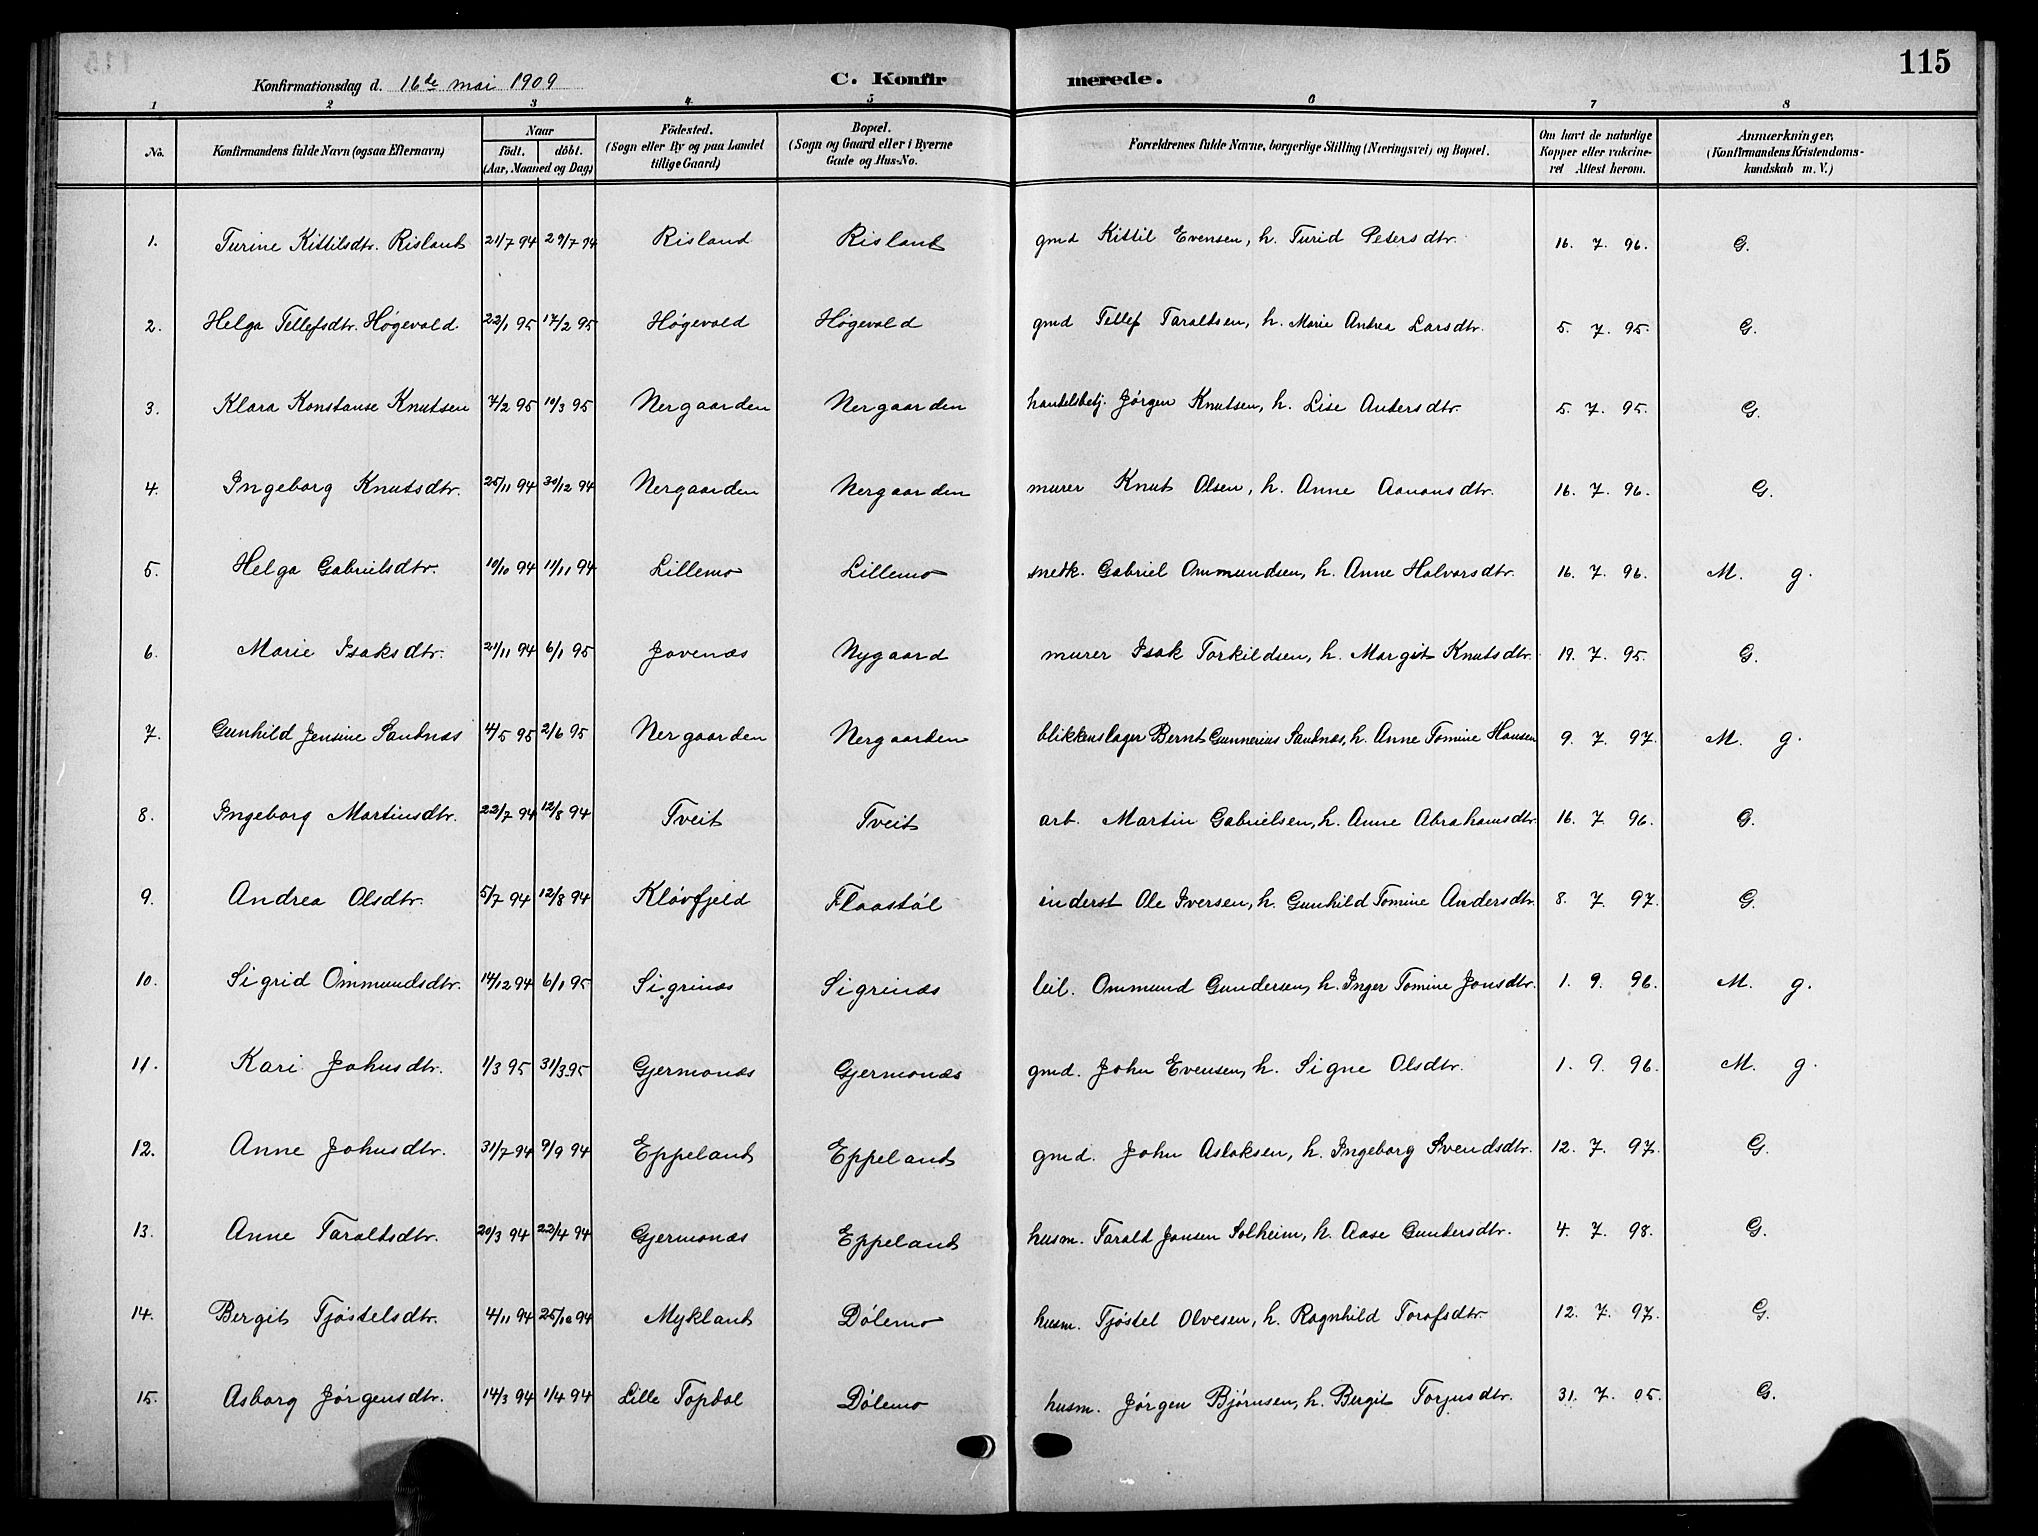 115
Konfirmationsdag d. 16de mai 1909 C. Konfirmerede.
1 2 3 4 5 6 7 8
No. Konfirmandens fulde Navn (ogsaa Efternavn) Naar født. døbt. (Aar, Maaned og Dag) Födested. (Sogn eller By og paa Landet tillige Gaard) Bopæl. (Sogn og Gaard eller i Byerne Gade og Hus-No. Forældrenes fulde Navne, borgerlige Stilling (Næringsvei) og Bopæl. Om havt de naturlige Kopper eller vakcineret Attest herom. Anmærkninger, (Konfirmandens Kristendomskundskab m. V.)
1. Turine Kittilsdtr. Risland 21/7 94 29/7 94 Risland Risland gmd Kittil Evensen, h. Turid Petersdtr. 16. 7. 96. G.
2. Helga Tellefsdtr. Høgevold 22/1 95 17/2 95 Høgevold Høgevold gmd Tellef Taraldsen, h. Marie Andrea Larsdtr. 5. 7. 95. G.
3. Klara Konstanse Knutsen 7/2 95 10/3 95 Nergaarden Nergaarden handelsbetj. Jørgen Knutsen, h. Lise Andersdtr. 5. 7. 95. G.
4. Ingeborg Knutsdtr. 25/11 94 30/12 94 Nergaarden Nergaarden murer Knut Olsen, h. Anne Aanonsdtr. 16. 7. 96. G.
5. Helga Gabrielsdtr. 10/10 94 11/11 94 Lillemo Lillemo snedk. Gabriel Ommundsen, h. Anne Halvorsdtr. 16. 7. 96. M. g.
6. Marie Isaksdtr. 21/11 94 6/1 95 Jovenæs Nygaard murer Isak Torkildsen, h. Margit Knutsdtr. 19. 7. 95. G.
7. Gunhild Jensine Sandnæs 4/5 95 2/6 95 Nergaarden Nergaarden blikkenslager Bernt Gunnerius Sandnæs, h. Anne Tomine Hansen 9. 7. 97. M. g.
8. Ingeborg Martinsdtr. 22/7 94 12/8 94 Tveit Tveit arb. Martin Gabrielsen, h. Anne Abrahamsdtr. 16. 7. 96. G.
9. Andrea Olsdtr. 5/7 94 12/8 94 Kløvfjeld Flaastøl inderst Ole Iversen, h. Gunhild Tomine Andersdtr. 8. 7. 97. G.
10. Sigrid Ommundsdtr. 14/12 94 6/1 95 Sigrinæs Sigrinæs leil. Ommund Gundersen, h. Inger Tomine Jonsdtr. 1. 9. 96. M. g.
11. Kari Johnsdtr. 1/3 95 31/3 95 Gjermonæs Gjermonæs gmd. John Evensen, h. Signe Olsdtr. 1. 9. 96. M. g.
12. Anne Johnsdtr. 31/7 94 9/9 94 Eppeland Eppeland gmd. John Aslaksen, h. Ingeborg Svendsdtr. 12. 7. 97. G.
13. Anne Taraldsdtr. 20/3 94 22/4 94 Gjermonæs Eppeland husm. Tarald Jonsen Solheim, h. Aase Gundersdtr. 4. 7. 98. G.
14. Bergit Tjøstelsdtr. 4/11 94 25/12 94 Mykland Dølemo husm. Tjøstel Olvesen, h. Ragnhild Torafsdtr. 12. 7. 97. G.
15. Asborg Jørgensdtr. 14/3 94 1/4 94 Lille Topdal Dølemo husm. Jørgen Bjørnsen, h. Bergit Torjusdtr. 31. 7. 05. G.